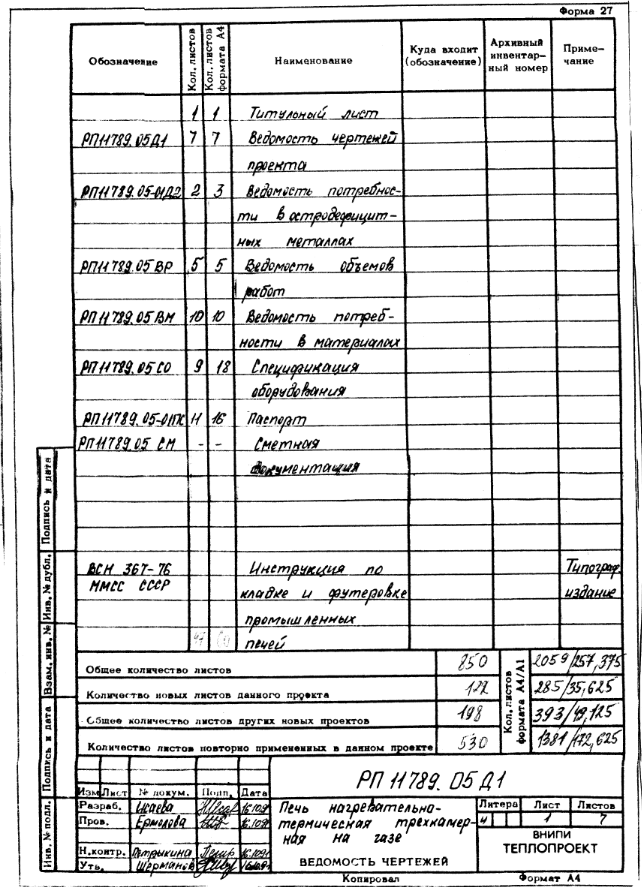 Форма 27
Обозначение Кол. листов Кол. листов формата А4 Наименование Куда входит (обозначение) Архивный инвентарный номер Примечание
1 1 Титульный лист
РП11789.05Д1 7 7 Ведомость чертежей
проекта
РП11789.05-01Д2 2 3 Ведомость потребнос-
ти в остродефицит-
ных металлах
РП11789.05 ВР 5 5 Ведомость объемов
работ
РП11789.05 ВМ 10 10 Ведомость потреб-
ности в материалах
РП11789.05 СО 9 18 Спецификация
оборудования
РП11789.05-01ПС 11 16 Паспорт
РП11789.05 СМ - - Сметная
документация
ВСН 367-76 Инструкция по Типограф.
ММСС СССР кладке и футеровке издание
промышленных
печей
Общее количество листов 850 2059/257,375
Количество новых листов данного проекта 122 285/35,625
Общее количество листов других новых проектов 198 393/49,125
Количество листов повторно примененных в данном проекте 530 1381/172,625
Кол. листов формата А4/А1
РП 11789.05Д1
Изм Лист № докум. Подп. Дата
Разраб. Исаева
Пров. Ермолова
Н.контр. Петрыкина
Утв. Шерманов
Печь нагревательно-
термическая трехкамер-
ная на газе
ВЕДОМОСТЬ ЧЕРТЕЖЕЙ
Литера Лист Листов
и 1 7
ВНИПИ
ТЕПЛОПРОЕКТ
Копировал Формат А4
Инв. № подл. Подпись и дата Взам. инв. № Инв. № дубл. Подпись и дата